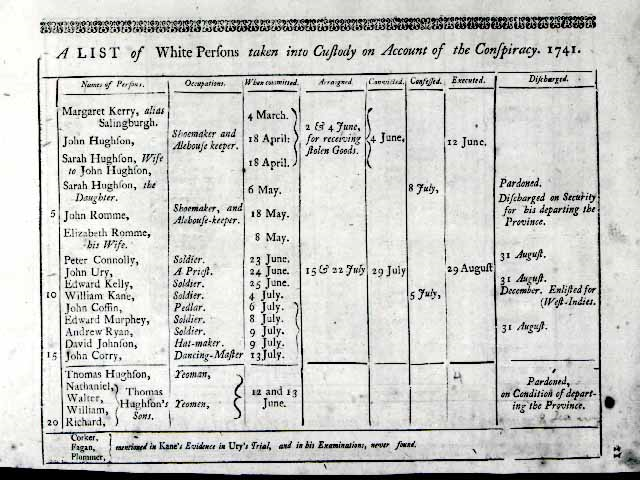 A LIST of White Persons taken into Custody on Account of the Conspiracy. 1741.
Names of Persons. Occupations. When committed. Arraigned. Convicted. Confessed. Executed. Discharged.
Margaret Kerry, alias
Salingburgh. 4 March.
John Hughson, Shoemaker and Alehouse keeper. 18 April: 2 & 4 June, for receiving stolen Goods. 4 June, 12 June.
Sarah Hughson, Wife
to John Hughson, 18 April:
Sarah Hughson, the
Daughter. 6 May. 8 July, Pardoned.
5 John Romme, Shoemaker, and Alehouse-keeper. 18 May. Discharged on Security for his departing the Province.
Elizabeth Romme,
his Wife. 8 May.
Peter Connolly, Soldier. 23 June. 31 August.
John Ury, A Priest. 24 June. 15 & 22 July 29 July 29 August
Edward Kelly, Soldier. 25 June. 31 August.
10 William Kane, Soldier. 4 July. 5 July, December. Enlisted for (West-Indies.
John Coffin, Pedlar. 6 July.
Edward Murphey, Soldier. 8 July.
Andrew Ryan, Soldier. 9 July. 31 August.
David Johnson, Hat-maker. 9 July.
15 John Corry, Dancing-Master 13 July.
Thomas Hughson, Yeoman,
Nathaniel,
Walter, Thomas Hughson's Sons. Yeomen, 12 and 13 June. Pardoned, on Condition of departing the Province.
William,
20 Richard,
Corker,
Fagan, mentioned in Kane's Evidence in Ury's Trial, and in his Examinations, never found.
Plummer,